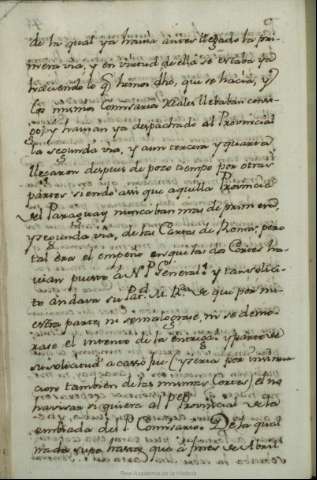 de la qual ya havia antes llegado la pri-
mera via, y en virtud de ella se estaba ya
haciendo lo q̃ hemos dho, que se hacia, y
los mismos Comisarios Reales llebaban consi-
go, y havian ya despachado al Provincial
la segunda via, y aun tercera y quarta
llegaron despues de poco tiempo por otras
partes siendo assi que aquella Provincia
del Paraguay nunca tubo mas de primera,
y segunda via, de las Cartas de Roma; pero
tal era el empeño en que las dos Cortes ha-
vian puesto á N. P. General, y tan solici-
to andava su Pd. M. Rda. de que por nu-
estra parte ni se malograse, ni se demo-
rase el intento de la entrega: y parte de
su solicitud acaso fue (y seria por insinua-
cion tambien de las mismas Cortes) el no
havisar si quiera al P. Provincial de la
embiada del P. Comisario: De la qual
nada supo hasta que á fines de Abril
Real Academia de la Historia